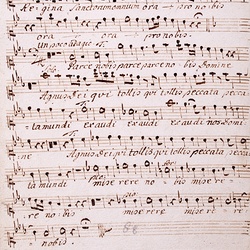 Regina Sanctorum omnium ora pro nobis
ora ora pro nobis.
Un poco Adagio
Parce nobis parce parce nobis Domine
Agnus Dei qui tollis qui tollis peccata pecca
ta mundi exaudi exaudi exaudi nos Domi
ne Agnus Dei qui tollis qui tollis peccata pecca
ta mundi miserere nobis miserere
re nobis miserere miserere
nobis.